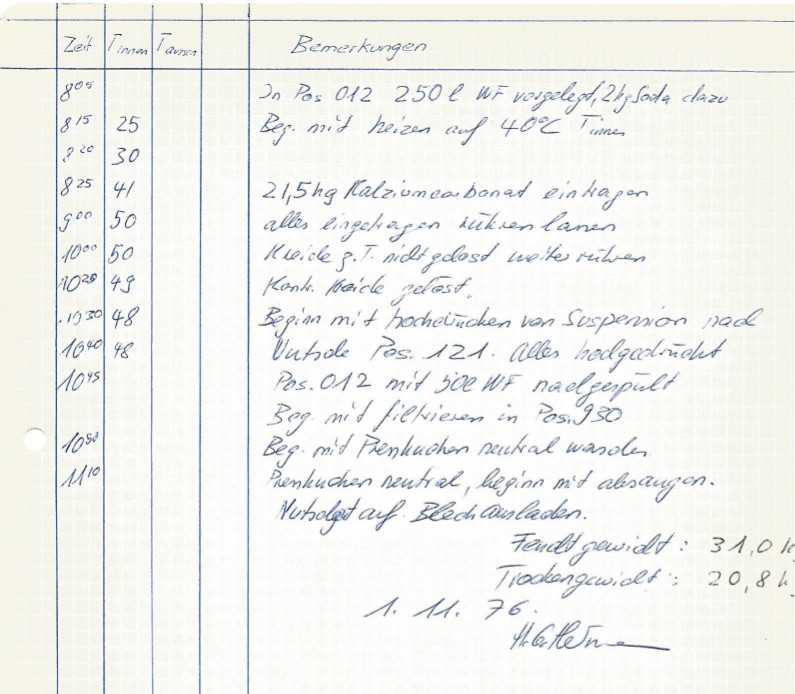 Zeit Tinnen Taussen Bemerkungen
8⁰⁵ In Pos 012 250 l WF vorgelegt, 2 kg Soda dazu
8¹⁵ 25 Beg. mit heizen auf 40°C Tinnen
8²⁰ 30
8²⁵ 41 21,5 kg Kalziumcarbonat eintragen
9⁰⁰ 50 alles eingetragen rühren lassen
10⁰⁰ 50 Kreide z.T. nicht gelöst weiter rühren
10²⁰ 49 Kontr. Kreide gelöst.
10³⁰ 48 Beginn mit hochdrücken von Suspension nach
10⁴⁰ 48 Nutsche Pos. 121. Alles hochgedrückt
10⁴⁵ Pos. 012 mit 50 l WF nachgespült
Beg. mit filtrieren in Pos. 930
10⁵⁰ Beg. mit Presskuchen neutral waschen
11¹⁰ Presskuchen neutral, beginn mit absaugen.
Nutschgut auf Blech ausladen.
Feuchtgewicht : 31,0 k
Trockengewicht : 20,8 k
1. 11. 76.